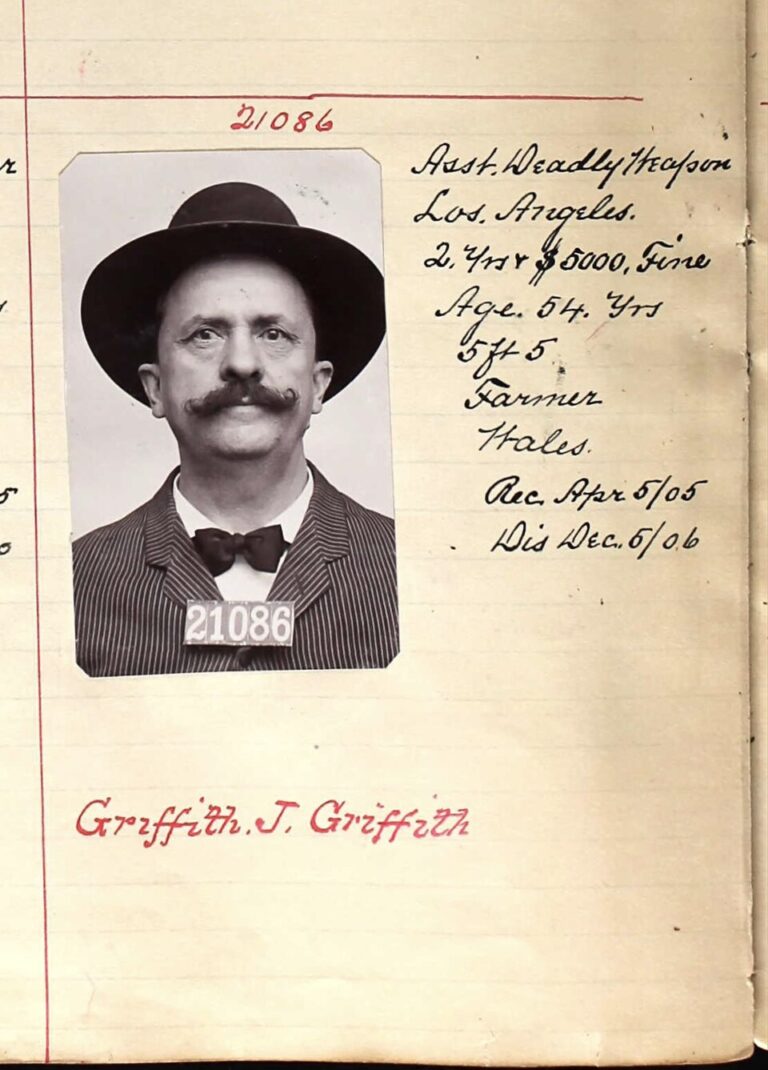 21086
Asst. Deadly Weapon
Los. Angeles.
2. Yrs & $5000. Fine
Age. 54. Yrs
5 ft 5
Farmer
Wales.
Rec. Apr 5/05
Dis Dec. 5/06
21086
Griffith. J. Griffith